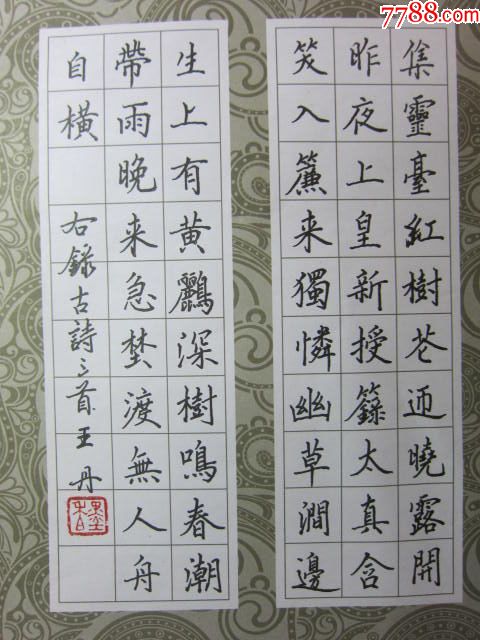 7788.com
集靈臺紅樹花迎曉露開
昨夜上皇新授籙太真含
笑入簾来獨憐幽草澗邊
生上有黃鸝深樹鳴春潮
帶雨晚来急埜渡無人舟
自橫
右錄古詩二首王丹